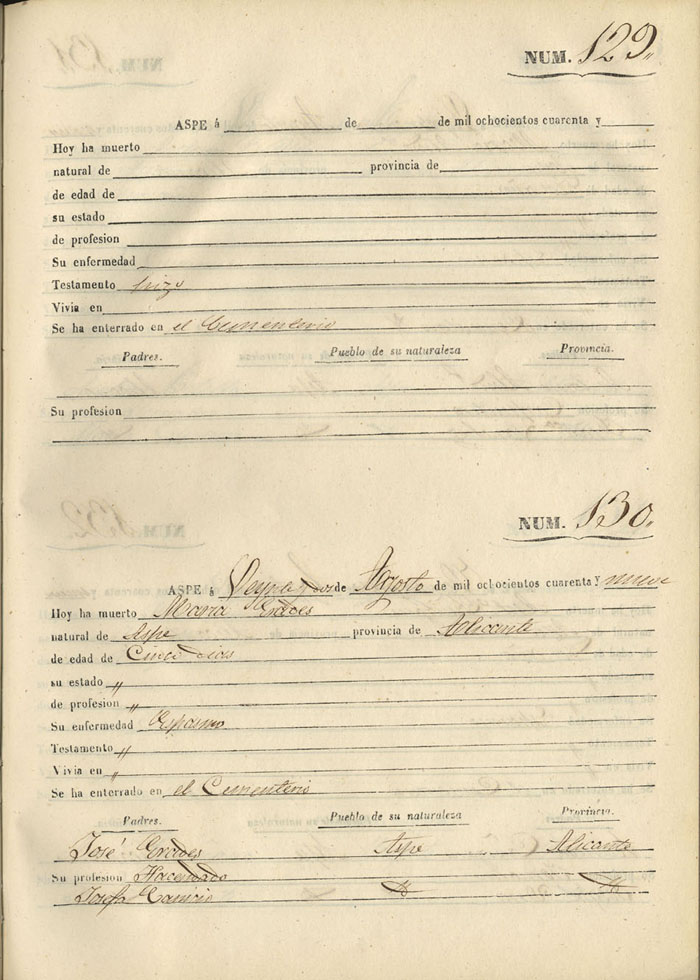 NUM. 129.
ASPE á de de mil ochocientos cuarenta y
Hoy ha muerto
natural de provincia de
de edad de
su estado
de profesion
Su enfermedad
Testamento hizo
Vivia en
Se ha enterrado en el Cementerio
Padres. Pueblo de su naturaleza Provincia.
Su profesion
NUM. 130.
ASPE á Veynte y dos de Agosto de mil ochocientos cuarenta y nueve
Hoy ha muerto Maria
natural de Aspe provincia de Alicante
de edad de Cinco dias
su estado "
de profesion "
Su enfermedad Espasmo
Testamento "
Vivia en "
Se ha enterrado en el Cementerio
Padres. Pueblo de su naturaleza Provincia.
José Aspe Alicante
Su profesion Hacendado
Josefa